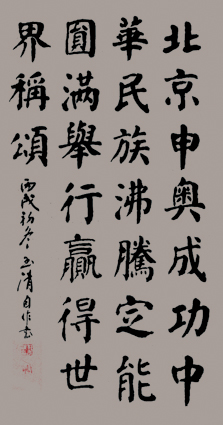 北京申奧成功中
華民族沸騰定能
圓滿舉行贏得世
界稱頌
丙戌初冬玉清自作書